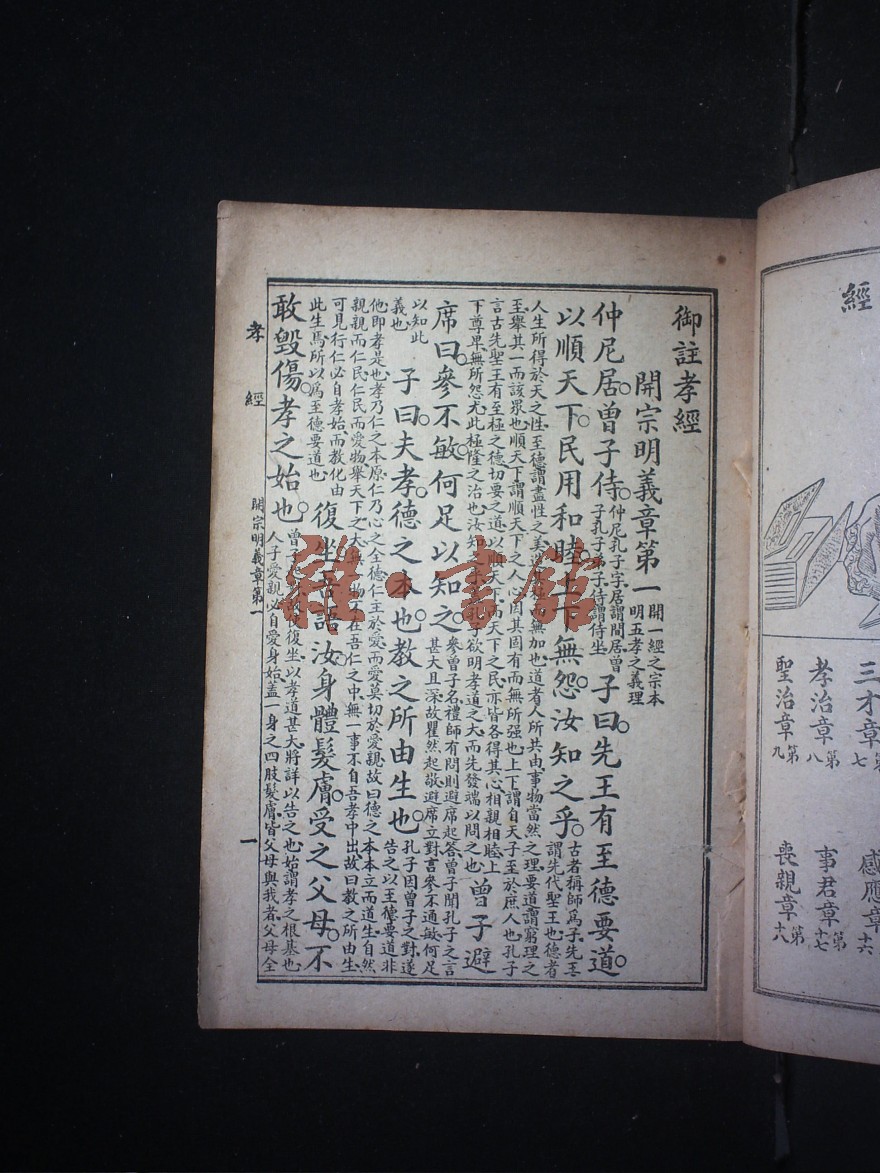 經
三才章第七
孝治章第八
聖治章第九
感應章十六
事君章第十七
喪親章第十八
御註孝經
開宗明義章第一
開一經之宗本
明五孝之義理
仲尼居。曾子侍。
仲尼孔子字居謂閒居曾
子孔子弟子侍謂侍坐
子曰先王有至德要道。
以順天下。民用和睦。上下無怨。汝知之乎。
古者稱師爲子先王
謂先代聖王也德者
人生所得於天之性至德謂盡性之美無加也道者人所共由事物當然之理要道謂窮理之
至舉其一而該衆也順天下謂順天下之人心因其固有而無所强也上下謂自天子至於庶人也孔子
言古先聖王有至極之德切要之道以順天下而天下之民亦皆各得其心相親相睦上
下尊卑無所怨尤此極隆之治也汝知之乎孔子欲明孝道之大而先發端以問之也
曾子避
席曰。參不敏。何足以知之。
參曾子名禮師有問則避席起答曾子聞孔子之言
甚大且深故瞿然起敬避席立對言參不通敏何足
以知此
義也
子曰。夫孝。德之本也。教之所由生也。
孔子因曾子之對遂
告之以至德要道非
他即孝是也孝乃仁之本原仁乃心之全德仁主於愛而愛莫切於愛親故曰德之本本立而道生自然
親親而仁民仁民而愛物舉天下之大無一物不在吾仁之中無一事不自吾孝中出故曰教之所由生
可見行仁必自孝始而教化由
此生焉所以爲至德要道也
復坐吾語汝身體髮膚。受之父母。不
敢毀傷。孝之始也。
曾子起對故復坐以孝道甚大將詳以告之也始謂孝之根基也
人子愛親必自愛身始蓋一身之四肢髮膚皆父母與我者父母全
孝經
開宗明義章第一
一
雜·書館